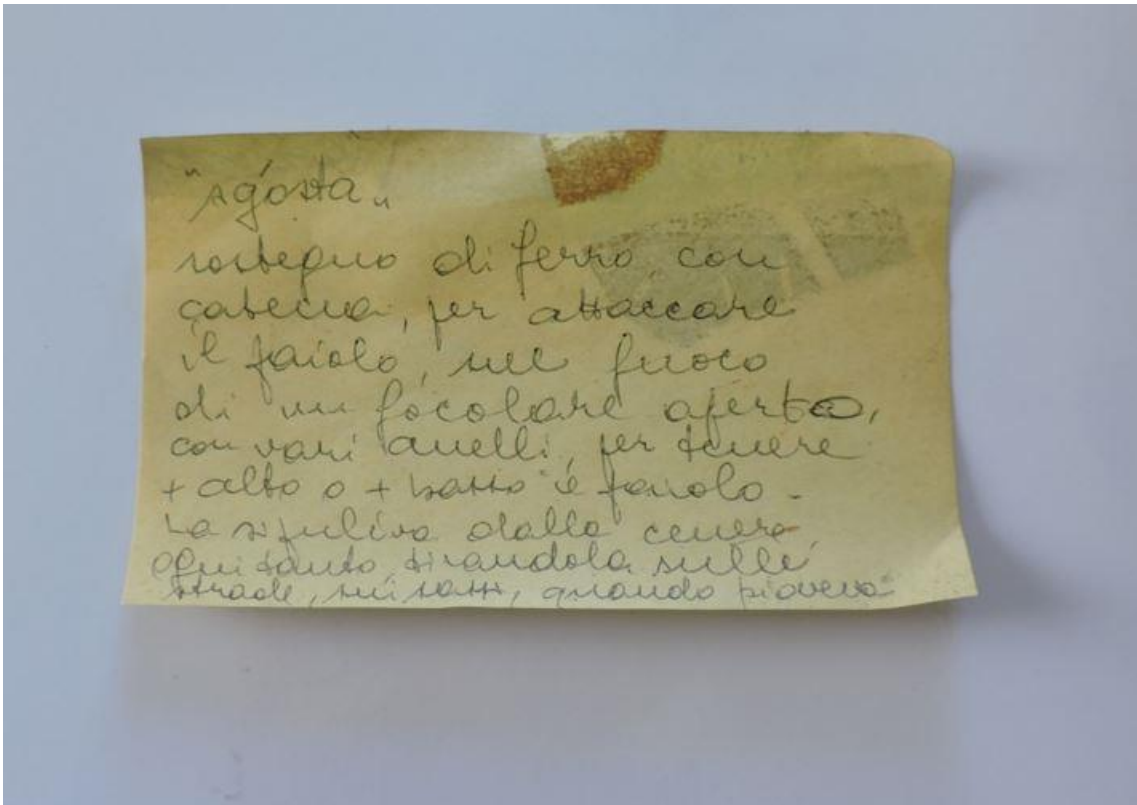 "Agósta"
sostegno di ferro con
catena, per attaccare
il paiolo, sul fuoco
di un focolare aperto,
con vari anelli, per tenere
+ alto o + basso il paiolo -
La si puliva dalla cenere,
ogni tanto, tirandola sulle
strade, sui sassi, quando pioveva